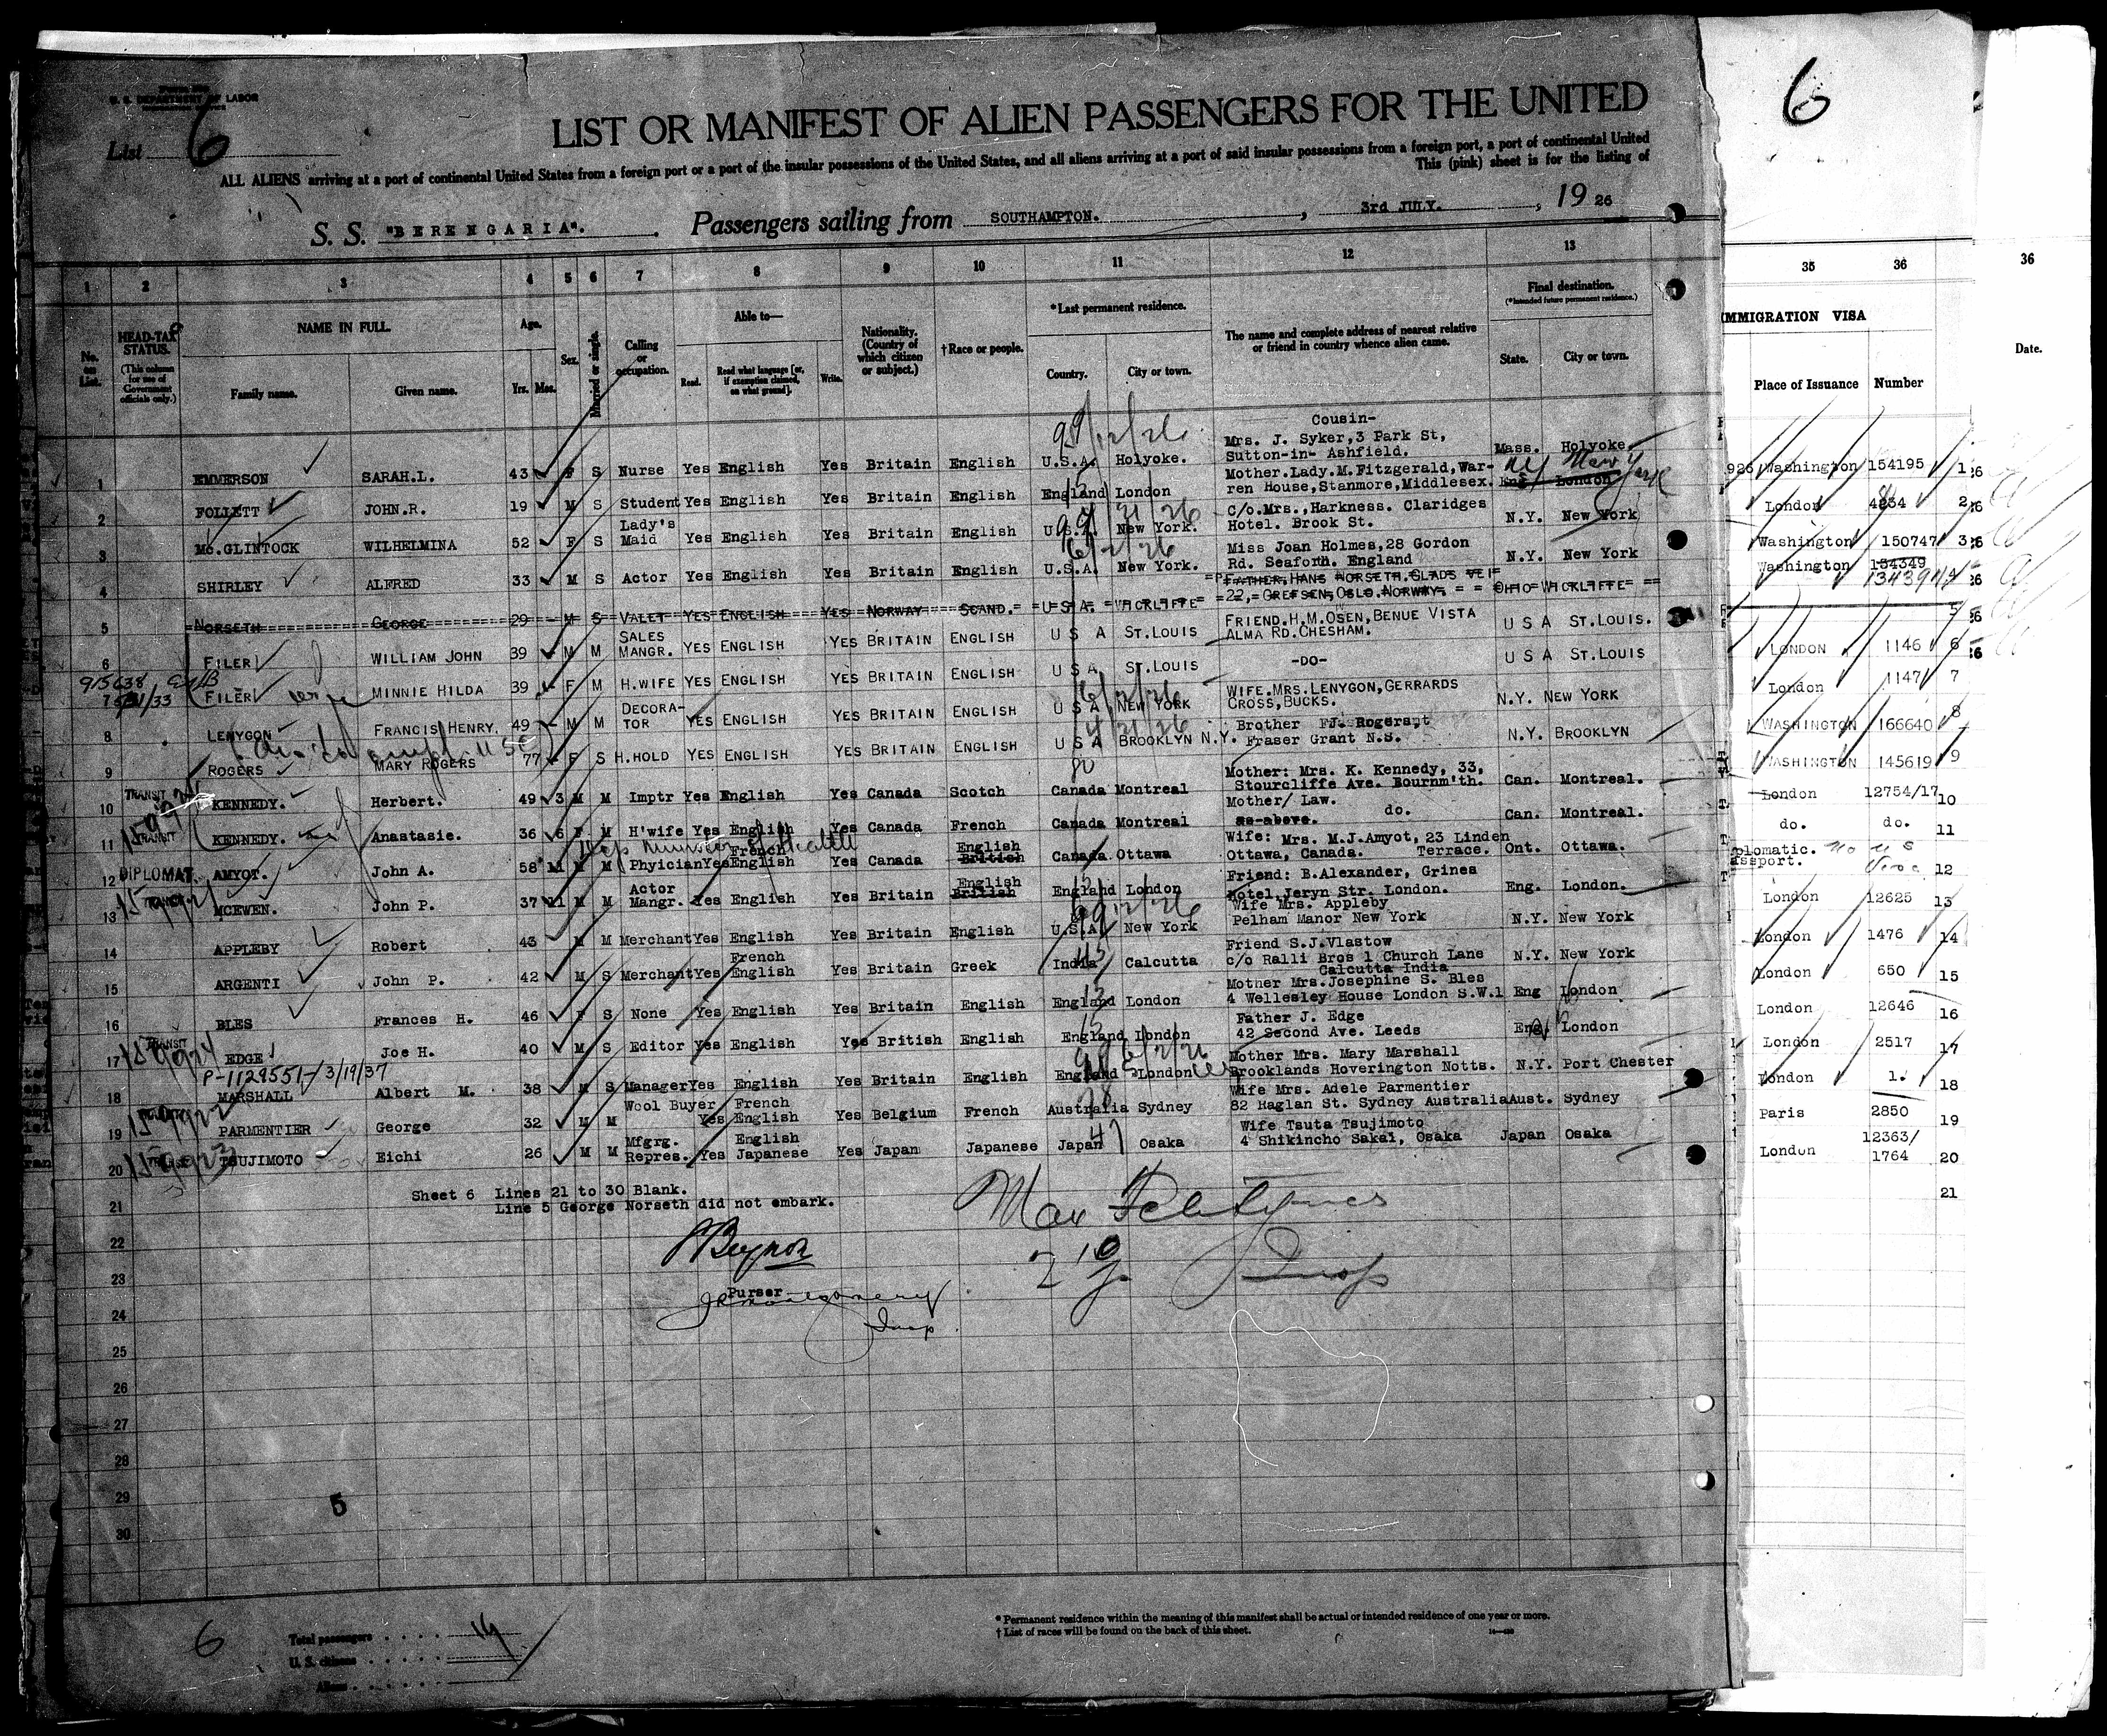 U. S. DEPARTMENT OF LABOR
List 6
LIST OR MANIFEST OF ALIEN PASSENGERS FOR THE UNITED
ALL ALIENS arriving at a port of continental United States from a foreign port or a port of the insular possessions of the United States, and all aliens arriving at a port of said insular possessions from a foreign port, a port of continental United
This (pink) sheet is for the listing of
S. S. "BERENGARIA". Passengers sailing from SOUTHAMPTON. , 3rd JULY. , 19 26
6
1 2 3 4 5 6 7 8 9 10 11 12 13 35 36 36
No. on List.
HEAD-TAX STATUS. (This column for use of Government officials only.)
NAME IN FULL. Family name. Given name.
Age. Yrs. Mos.
Sex.
Married or single.
Calling or occupation.
Able to— Read. Read what language [or, if exemption claimed, on what ground]. Write.
Nationality. (Country of which citizen or subject.)
†Race or people.
*Last permanent residence. Country. City or town.
The name and complete address of nearest relative or friend in country whence alien came.
Final destination. (*Intended future permanent residence.) State. City or town.
IMMIGRATION VISA Place of Issuance Number
Date.
Cousin-
Mrs. J. Syker,3 Park St,
1 EMMERSON SARAH.L. 43 F S Nurse Yes English Yes Britain English U.S.A. Holyoke. Sutton-in- Ashfield. Mass. Holyoke Washington 154195 1
Mother.Lady.M.Fitzgerald,War-
2 FOLLETT JOHN.R. 19 M S Student Yes English Yes Britain English England London ren House,Stanmore,Middlesex. Eng London NY New York London 4234 2
Lady's C/o.Mrs.,Harkness. Claridges
3 Mc.GLINTOCK WILHELMINA 52 F S Maid Yes English Yes Britain English U.S.A. New York. Hotel. Brook St. N.Y. New York Washington 150747 3
Miss Joan Holmes,28 Gordon
4 SHIRLEY ALFRED 33 M S Actor Yes English Yes Britain English U.S.A. New York. Rd. Seaford. England N.Y. New York Washington 134349
FATHER,HANS NORSETH.GLADS VEI
5 NORSETH GEORGE 29 M S VALET YES ENGLISH YES NORWAY SCAND. U S A. WICKLIFFE 22, GREFSEN,OSLO.NORWAY. OHIO WICKLIFFE 5
SALES FRIEND.H.M.OSEN,BENUE VISTA
6 FILER WILLIAM JOHN 39 M M MANGR. YES ENGLISH YES BRITAIN ENGLISH U S A ST.LOUIS ALMA RD.CHESHAM. U S A ST.LOUIS. LONDON 1146 6
7 FILER MINNIE HILDA 39 F M H.WIFE YES ENGLISH YES BRITAIN ENGLISH U S A ST.LOUIS -DO- U S A ST.LOUIS London 1147 7
DECORA- WIFE.MRS.LENYGON,GERRARDS
8 LENYGON FRANCIS HENRY. 49 M M TOR YES ENGLISH YES BRITAIN ENGLISH U S A NEW YORK CROSS,BUCKS. N.Y. NEW YORK WASHINGTON 166640 8
Brother
9 ROGERS MARY ROGERS 77 F S H.HOLD YES ENGLISH YES BRITAIN ENGLISH U S A BROOKLYN N.Y. Fraser Grant N.S. N.Y. BROOKLYN WASHINGTON 145619 9
TRANSIT Mother: Mrs. K. Kennedy, 33,
10 KENNEDY. Herbert. 49 3 M M Imptr Yes English Yes Canada Scotch Canada Montreal Stourcliffe Ave. Bournm'th. Can. Montreal. London 12754/17 10
TRANSIT Mother/ Law.
11 KENNEDY. Anastasie. 36 6 F M H'wife Yes English Yes Canada French Canada Montreal as above. do. Can. Montreal. do. do. 11
French English Wife: Mrs. M.J.Amyot, 23 Linden
12 DIPLOMAT. AMYOT. John A. 58 11 M M Phyician Yes English Yes Canada British Canada Ottawa Ottawa, Canada. Terrace. Ont. Ottawa. plomatic. assport. no U S Visa 12
Actor English Friend: B.Alexander, Grines
13 TRANSIT MCEWEN. John P. 37 11 M M Mangr. Yes English Yes Britain British England London Hotel,Jeryn Str. London. Eng. London. London 12625 13
Wife Mrs. Appleby
14 APPLEBY Robert 43 M M Merchant Yes English Yes Britain English U.S.A. New York Pelham Manor New York N.Y. New York London 1476 14
French Friend S.J.Vlastow
15 ARGENTI John P. 42 M S Merchant Yes English Yes Britain Greek India Calcutta c/o Ralli Bros 1 Church Lane N.Y. New York London 650 15
Calcutta India
Mother Mrs.Josephine S. Bles
16 BLES Frances H. 46 F S None Yes English Yes Britain English England London 4 Wellesley House London S.W.1 Eng London London 12646 16
Father J. Edge
17 TRANSIT EDGE Joe H. 40 M S Editor Yes English Yes British English England London 42 Second Ave. Leeds Eng. London London 2517 17
P-1129551-3/19/37 Mother Mrs. Mary Marshall
18 MARSHALL Albert M. 38 M S Manager Yes English Yes Britain English England London Brooklands Hoverington Notts. N.Y. Port Chester London 1. 18
Wool Buyer French Wife Mrs. Adele Parmentier
19 PARMENTIER George 32 M M Yes English Yes Belgium French Australia Sydney 82 Raglan St. Sydney Australia Aust. Sydney Paris 2850 19
Mfgrg. English Wife Tsuta Tsujimoto 12363/
20 TSUJIMOTO Eichi 26 M M Repres. Yes Japanese Yes Japan Japanese Japan Osaka 4 Shikincho Sakai, Osaka Japan Osaka London 1764 20
Sheet 6 Lines 21 to 30 Blank.
21 Line 5 George Norseth did not embark. 21
22
23
Purser
24
25
26
27
28
29
5
30
* Permanent residence within the meaning of this manifest shall be actual or intended residence of one year or more.
† List of races will be found on the back of this sheet.
6
Total passengers 19
U. S. citizens
Aliens